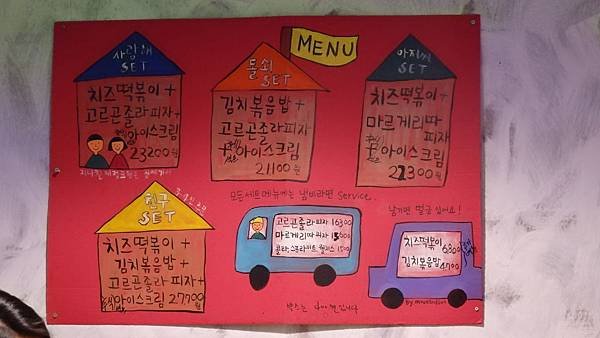 MENU
사랑해
SET
치즈떡볶이+
고르곤졸라피자+
아이스크림
23200원
돌쇠
SET
김치볶음밥+
고르곤졸라피자
아이스크림
21100원
아저씨
SET
치즈떡볶이+
마르게리따
피자
아이스크림
22300원
친구
SET
치즈떡볶이+
김치볶음밥+
고르곤졸라피자+
아이스크림 27700원
모든세트메뉴에는 냄비라면 service.
고르곤졸라 피자 16300
마르게리따 피자
콜라, 스프라이트, 1500
남기면 벌금 있어요!
치즈떡볶이 6800
김치볶음밥 4700